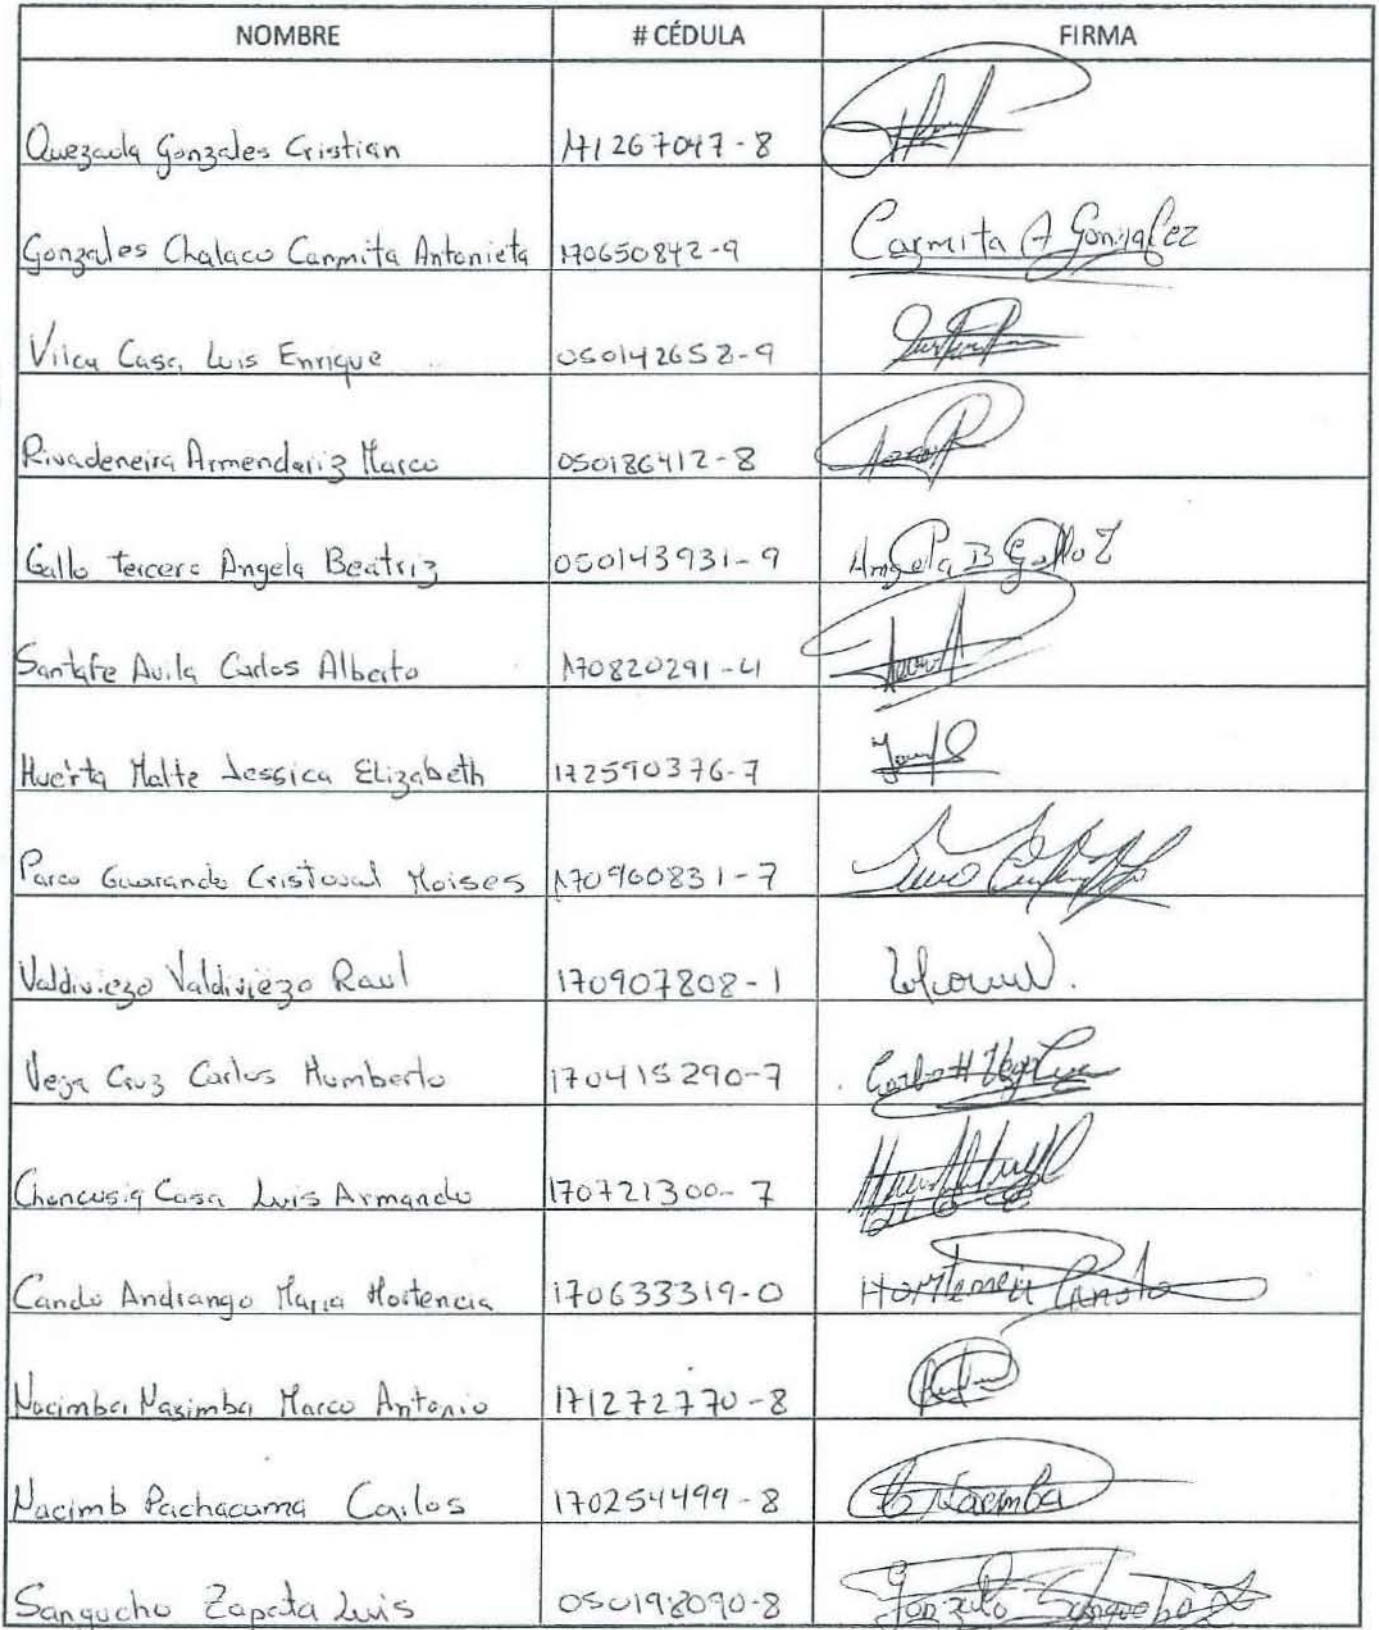 NOMBRE # CÉDULA FIRMA
Quezada Gonzales Cristian 171267047-8
Gonzales Chalaco Carmita Antonieta 170650842-9 Carmita A Gonzalez
Vilca Casa Luis Enrique 050142652-9
Rivadeneira Armendariz Marco 050186412-8
Gallo Tercero Angela Beatriz 050143931-9 Angela B Gallo T
Santafe Avila Carlos Alberto 170820291-4
Huerta Malte Jessica Elizabeth 172590376-7
Parco Guarando Cristoval Moises 170960831-7
Valdiviezo Valdiviezo Raul 170907808-1
Vega Cruz Carlos Humberto 170415290-7 Carlos H Vega Cruz
Chancusig Casa Luis Armando 170721300-7
Cando Andrango Maria Hortencia 170633319-0 Hortencia Cando
Nacimba Nasimba Marco Antonio 171272770-8
Nacimb Pachacama Carlos 170254499-8 C Nacimba
Sangucho Zapata Luis 050198090-8 Gonzalo Sangucho Z